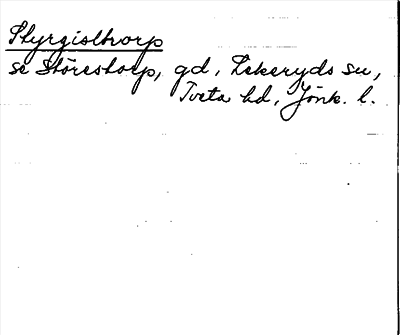 Styrgisthorp
se Störestorp, gd, Lekeryds sn,
Tveta hd, Jönk. l.